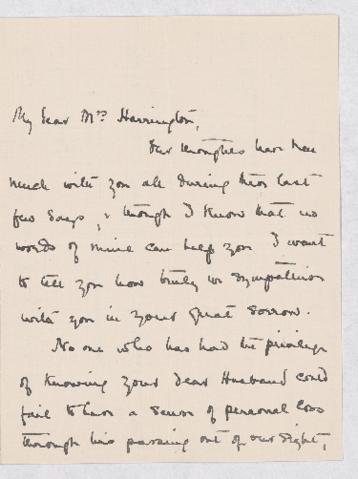 My dear Mrs Harrington,
Our thoughts have been
much with you all during these last
few days, & though I know that no
words of mine can help you I want
to tell you how truly we sympathise
with you in your great sorrow.
No one who has had the privilege
of knowing your dear Husband could
fail to have a sense of personal loss
through his passing out of our sight,